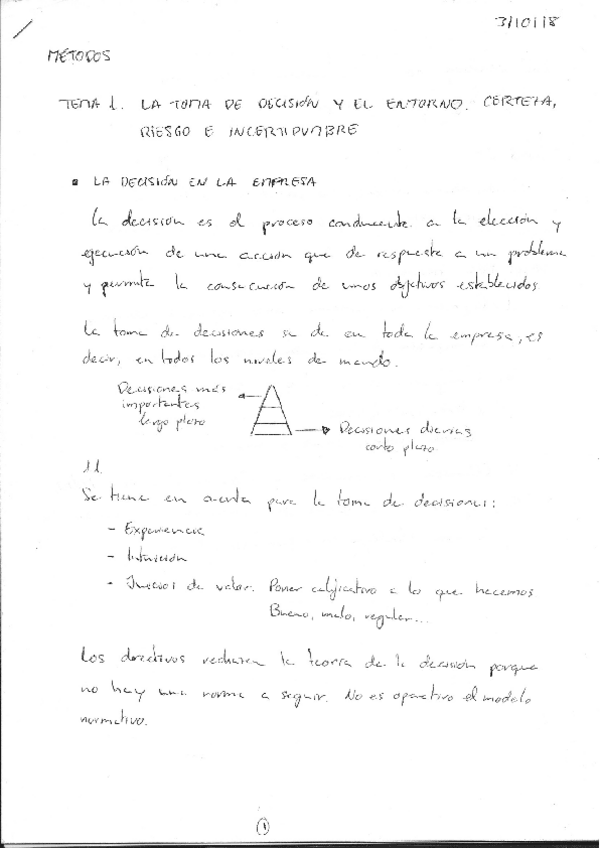 3/10/18
MÉTODOS
TEMA 1. LA TOMA DE DECISIÓN Y EL ENTORNO. CERTEZA,
RIESGO E INCERTIDUMBRE
LA DECISIÓN EN LA EMPRESA
La decisión es el proceso conducente a la elección y
ejecución de una acción que de respuesta a un problema
y permita la consecución de unos objetivos establecidos.
La toma de decisiones se da en toda la empresa, es
decir, en todos los niveles de mando.
Decisiones más
importantes
largo plazo
Decisiones diarias
corto plazo
1.1.
Se tiene en cuenta para la toma de decisiones:
- Experiencia
- Intuición
- Juicios de valor. Poner calificativo a lo que hacemos
Bueno, malo, regular...
Los directivos rechazan la teoría de la decisión porque
no hay una norma a seguir. No es operativo el modelo
normativo.
1